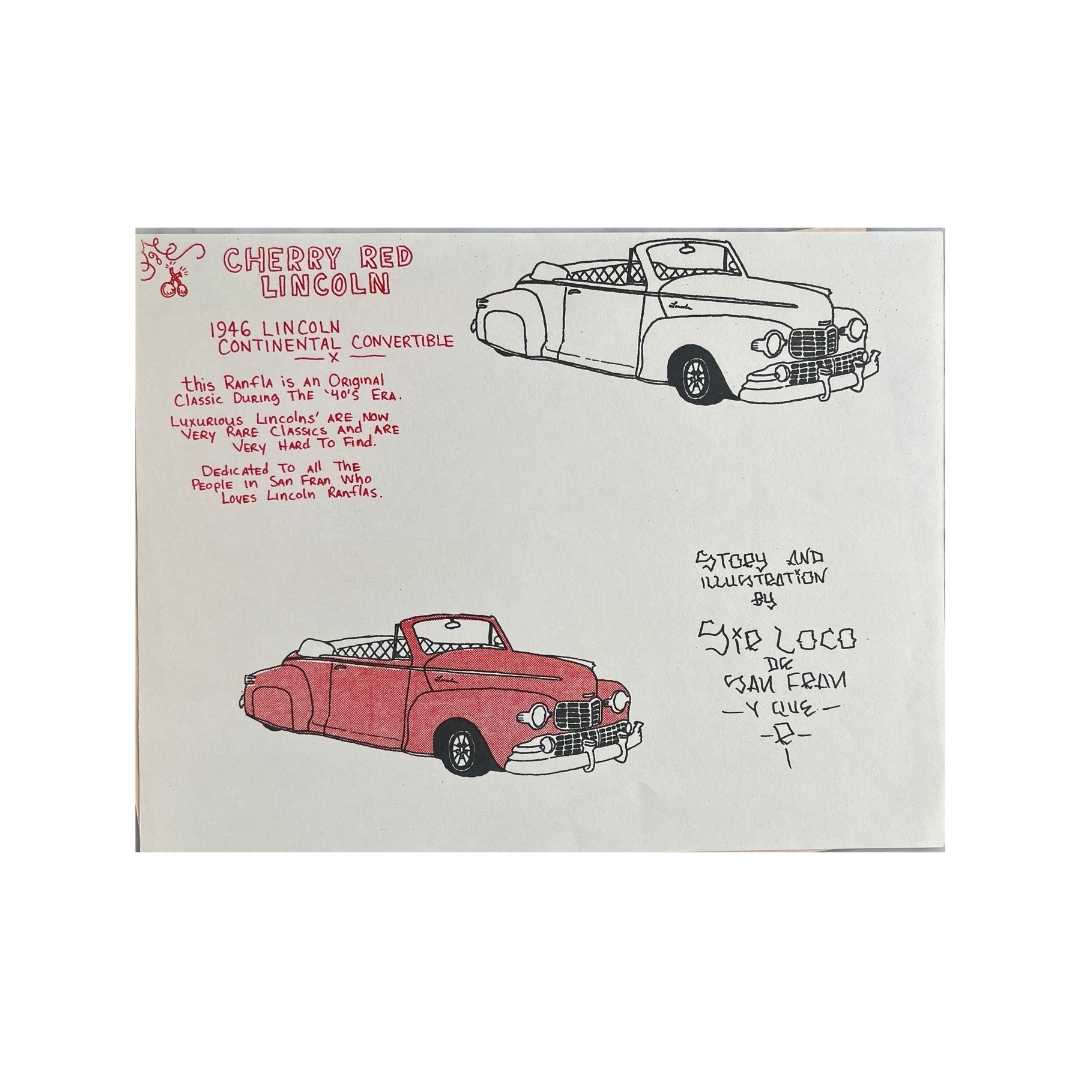 CHERRY RED
LINCOLN
1946 LINCOLN
CONTINENTAL CONVERTIBLE
x
this Ranfla is an Original
Classic During The '40's Era.
Luxurious Lincolns' are now
very rare classics and are
very hard to find.
Dedicated to all the
People in San Fran who
loves Lincoln Ranflas.
Lincoln
Lincoln
STORY AND
ILLUSTRATION
BY
Sir Loco
DE
SAN FRAN
— Y QUE —